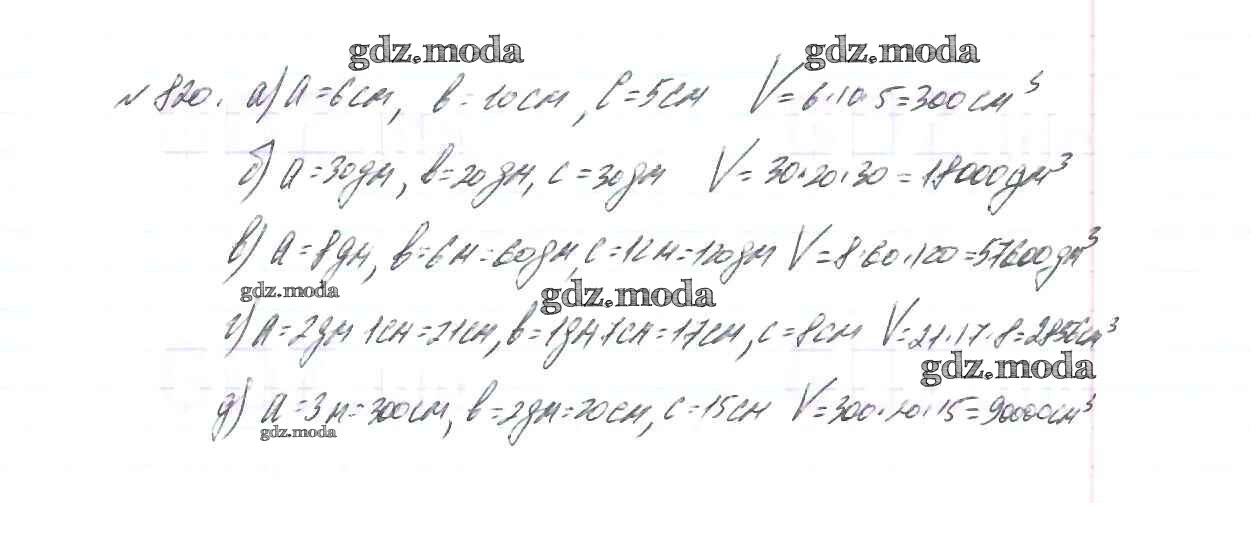 gdz.moda gdz.moda
№ 820. а) a = 6 см, b = 10 см, c = 5 см V = 6·10·5 = 300 см³
б) a = 30 дм, b = 20 дм, c = 30 дм V = 30·20·30 = 18000 дм³
в) a = 8 дм, b = 6 м = 60 дм, c = 12 м = 120 дм V = 8·60·120 = 57600 дм³
gdz.moda gdz.moda
г) a = 2 дм 1 см = 21 см, b = 1 дм 7 см = 17 см, c = 8 см V = 21·17·8 = 2856 см³
gdz.moda
д) a = 3 м = 300 см, b = 2 дм = 20 см, c = 15 см V = 300·20·15 = 90000 см³
gdz.moda